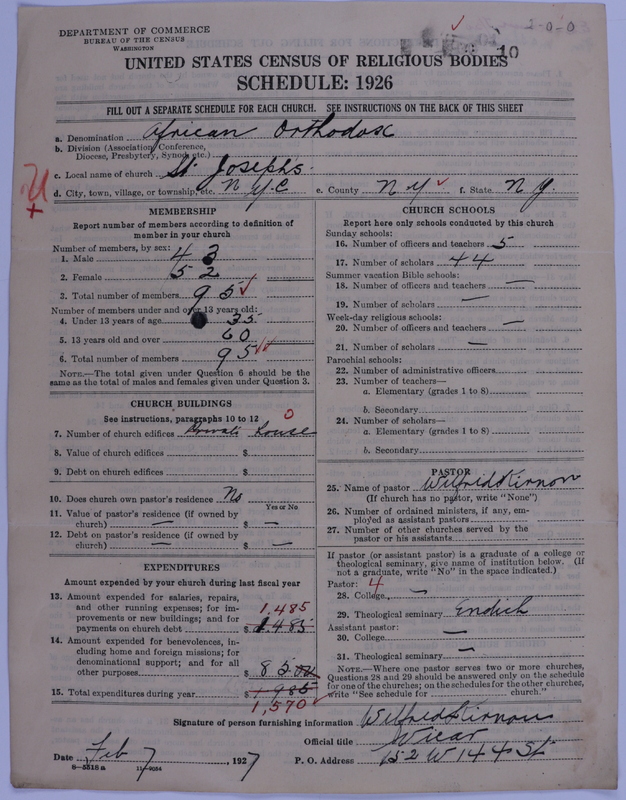 DEPARTMENT OF COMMERCE
BUREAU OF THE CENSUS
WASHINGTON
2-0-0
10
UNITED STATES CENSUS OF RELIGIOUS BODIES
SCHEDULE: 1926
FILL OUT A SEPARATE SCHEDULE FOR EACH CHURCH. SEE INSTRUCTIONS ON THE BACK OF THIS SHEET
a. Denomination African Orthodox
b. Division (Association, Conference,
Diocese, Presbytery, Synod, etc.)
c. Local name of church St Josephs.
d. City, town, village, or township, etc. N Y C e. County N Y f. State N Y
MEMBERSHIP
Report number of members according to definition of
member in your church
Number of members, by sex:
1. Male 43
2. Female 52
3. Total number of members 95
Number of members under and over 13 years old:
4. Under 13 years of age 35
5. 13 years old and over 60
6. Total number of members 95
NOTE.—The total given under Question 6 should be the
same as the total of males and females given under Question 3.
CHURCH BUILDINGS
See instructions, paragraphs 10 to 12
7. Number of church edifices Private House 0
8. Value of church edifices $
9. Debt on church edifices $
10. Does church own pastor's residence No
Yes or No
11. Value of pastor's residence (if owned by
church) — $ —
12. Debt on pastor's residence (if owned by
church) — $ —
EXPENDITURES
Amount expended by your church during last fiscal year
13. Amount expended for salaries, repairs,
and other running expenses; for im-
provements or new buildings; and for
payments on church debt $ 1.485
1,485
14. Amount expended for benevolences, in-
cluding home and foreign missions; for
denominational support; and for all
other purposes $ 85.00
15. Total expenditures during year $ 1985
1,570
CHURCH SCHOOLS
Report here only schools conducted by this church
Sunday schools:
16. Number of officers and teachers 5
17. Number of scholars 44
Summer vacation Bible schools:
18. Number of officers and teachers —
19. Number of scholars —
Week-day religious schools:
20. Number of officers and teachers —
21. Number of scholars —
Parochial schools:
22. Number of administrative officers
23. Number of teachers—
a. Elementary (grades 1 to 8)
b. Secondary
24. Number of scholars—
a. Elementary (grades 1 to 8)
b. Secondary
PASTOR
25. Name of pastor Wilfrid Kirnon
(If church has no pastor, write "None")
26. Number of ordained ministers, if any, em-
ployed as assistant pastors
27. Number of other churches served by the
pastor or his assistants
If pastor (or assistant pastor) is a graduate of a college or
theological seminary, give name of institution below. (If
not a graduate, write "No" in the space indicated.)
Pastor: 4
28. College —
29. Theological seminary Endich
Assistant pastor:
30. College —
31. Theological seminary —
NOTE.—Where one pastor serves two or more churches,
Questions 28 and 29 should be answered only on the schedule
for one of the churches; on the schedules for the other churches,
write "See schedule for church."
Signature of person furnishing information Wilfrid Kirnon
Official title Vicar
Date Feb 7, 1927 P. O. Address 152 W 144 St
8—5518 a 11—9054